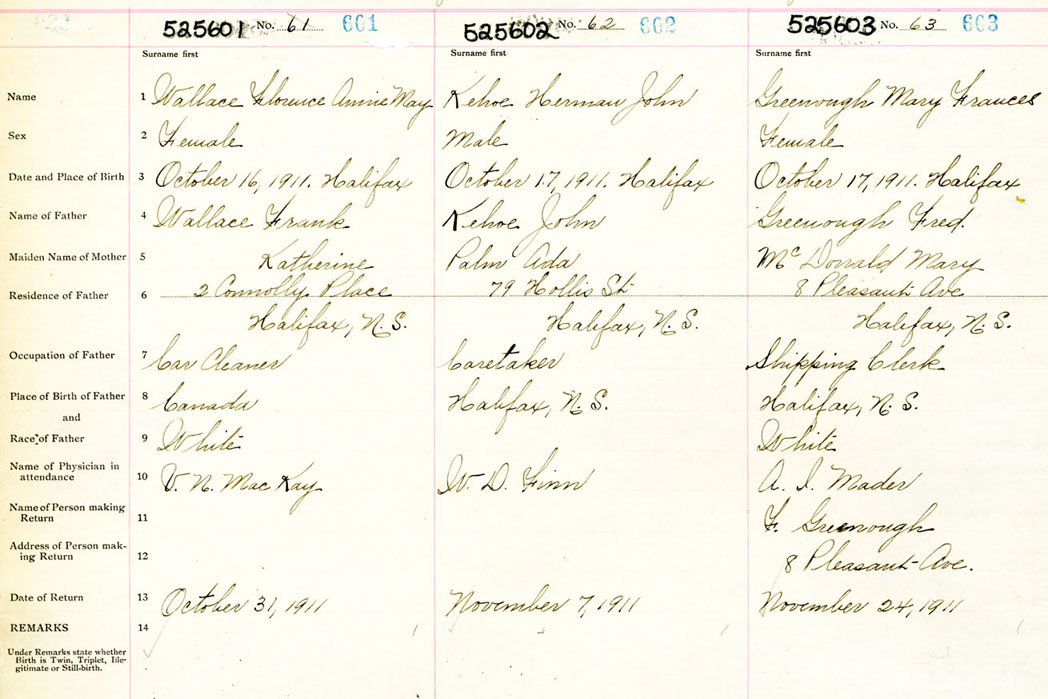 525601 No. 61 601 525602 No. 62 602 525603 No. 63 603
Surname first Surname first Surname first
Name 1 Wallace Florence Annie May Kehoe Herman John Greenough Mary Frances
Sex 2 Female Male Female
Date and Place of Birth 3 October 16, 1911. Halifax October 17, 1911. Halifax October 17, 1911. Halifax
Name of Father 4 Wallace Frank Kehoe John Greenough Fred.
Maiden Name of Mother 5 Katherine Palm Ada Mc Donald Mary
Residence of Father 6 2 Connolly Place 79 Hollis St. 8 Pleasant Ave
Halifax, N.S. Halifax, N.S. Halifax, N.S.
Occupation of Father 7 Car Cleaner Caretaker Shipping Clerk
Place of Birth of Father 8 Canada Halifax, N.S. Halifax, N.S.
and
Race of Father 9 White White
Name of Physician in
attendance 10 V. N. Mac Kay W. D. Finn A. I. Mader
Name of Person making
Return 11 F. Greenough
Address of Person mak-
ing Return 12 8 Pleasant Ave.
Date of Return 13 October 31, 1911 November 7, 1911 November 24, 1911
REMARKS 14
Under Remarks state whether
Birth is Twin, Triplet, Ille-
gitimate or Still-birth.